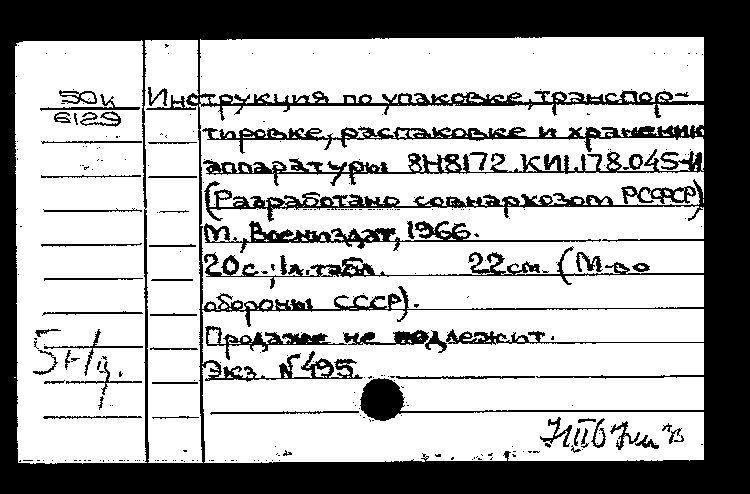 50к
6129
Инструкция по упаковке, транспор-
тировке, распаковке и хранению
аппаратуры 8Н8172.КИ1.178.045-И
(Разработано совнархозом РСФСР)
М., Воениздат, 1966.
20с.; 1л.табл. 22см. (М-во
обороны СССР).
Продаже не подлежит.
Экз. №495.